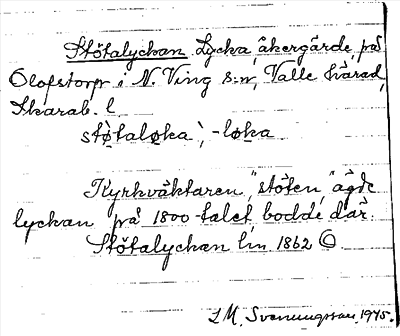 Stötalyckan Lycka, åkergärde, på
Olofstorp i N. Ving s:n, Valle härad,
Skarab. l.
støtaløka`, -løka
Kyrkväktaren, "stöten," ägde
lyckan på 1800-talet bodde där.
Stötalyckan lín 1862 ©
Svenungsson, 1945.